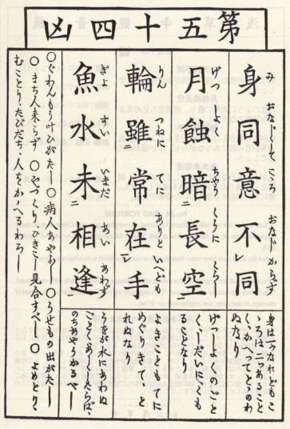 第五十四凶
身同意不レ同
み おなじうして こゝろ おなじからず
身は一つなれどもこ
ゝろは二つあること
く、かへつてとゝのわ
ぬなり
月蝕暗二長空一
げつ しよく ちやう くうに くらし
げつしよくのごと
く、しだいにくも
ることなり
輪雖二常在一レ手
りん つねに てに ありと いへども
よきこともてに
めぐりきて、と
れぬなり
魚水未二相逢一
ぎよ すい いまだ あい あわず
うをが水にあわぬ
ことくあしくしたらば、
のちあやうかるべし
○ぐわんもう叶ひがたし ○病人あやふし ○うせもの出がたし
○まち人来らず ○やづくり、ひきこし見合すべし ○よめとり、
むことり、たびだち、人をかゝへるわろし